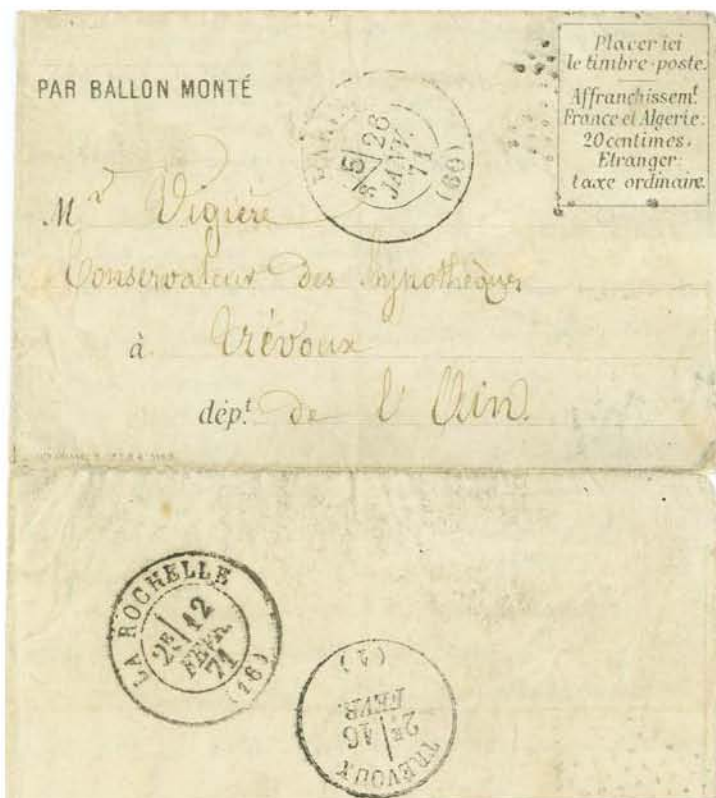 PAR BALLON MONTÉ
PARIS
5E 26
JANV.
71
(60)
Placer ici
le timbre-poste.
Affranchissemt.
France et Algérie:
20 centimes.
Etranger:
taxe ordinaire.
Mr Vigière
Conservateur des hypothèques
à Trévoux
dépt. de l'Ain
LA ROCHELLE
2E 12
FEVR.
71
(16)
TREVOUX
2E 16
FEVR.
(1)